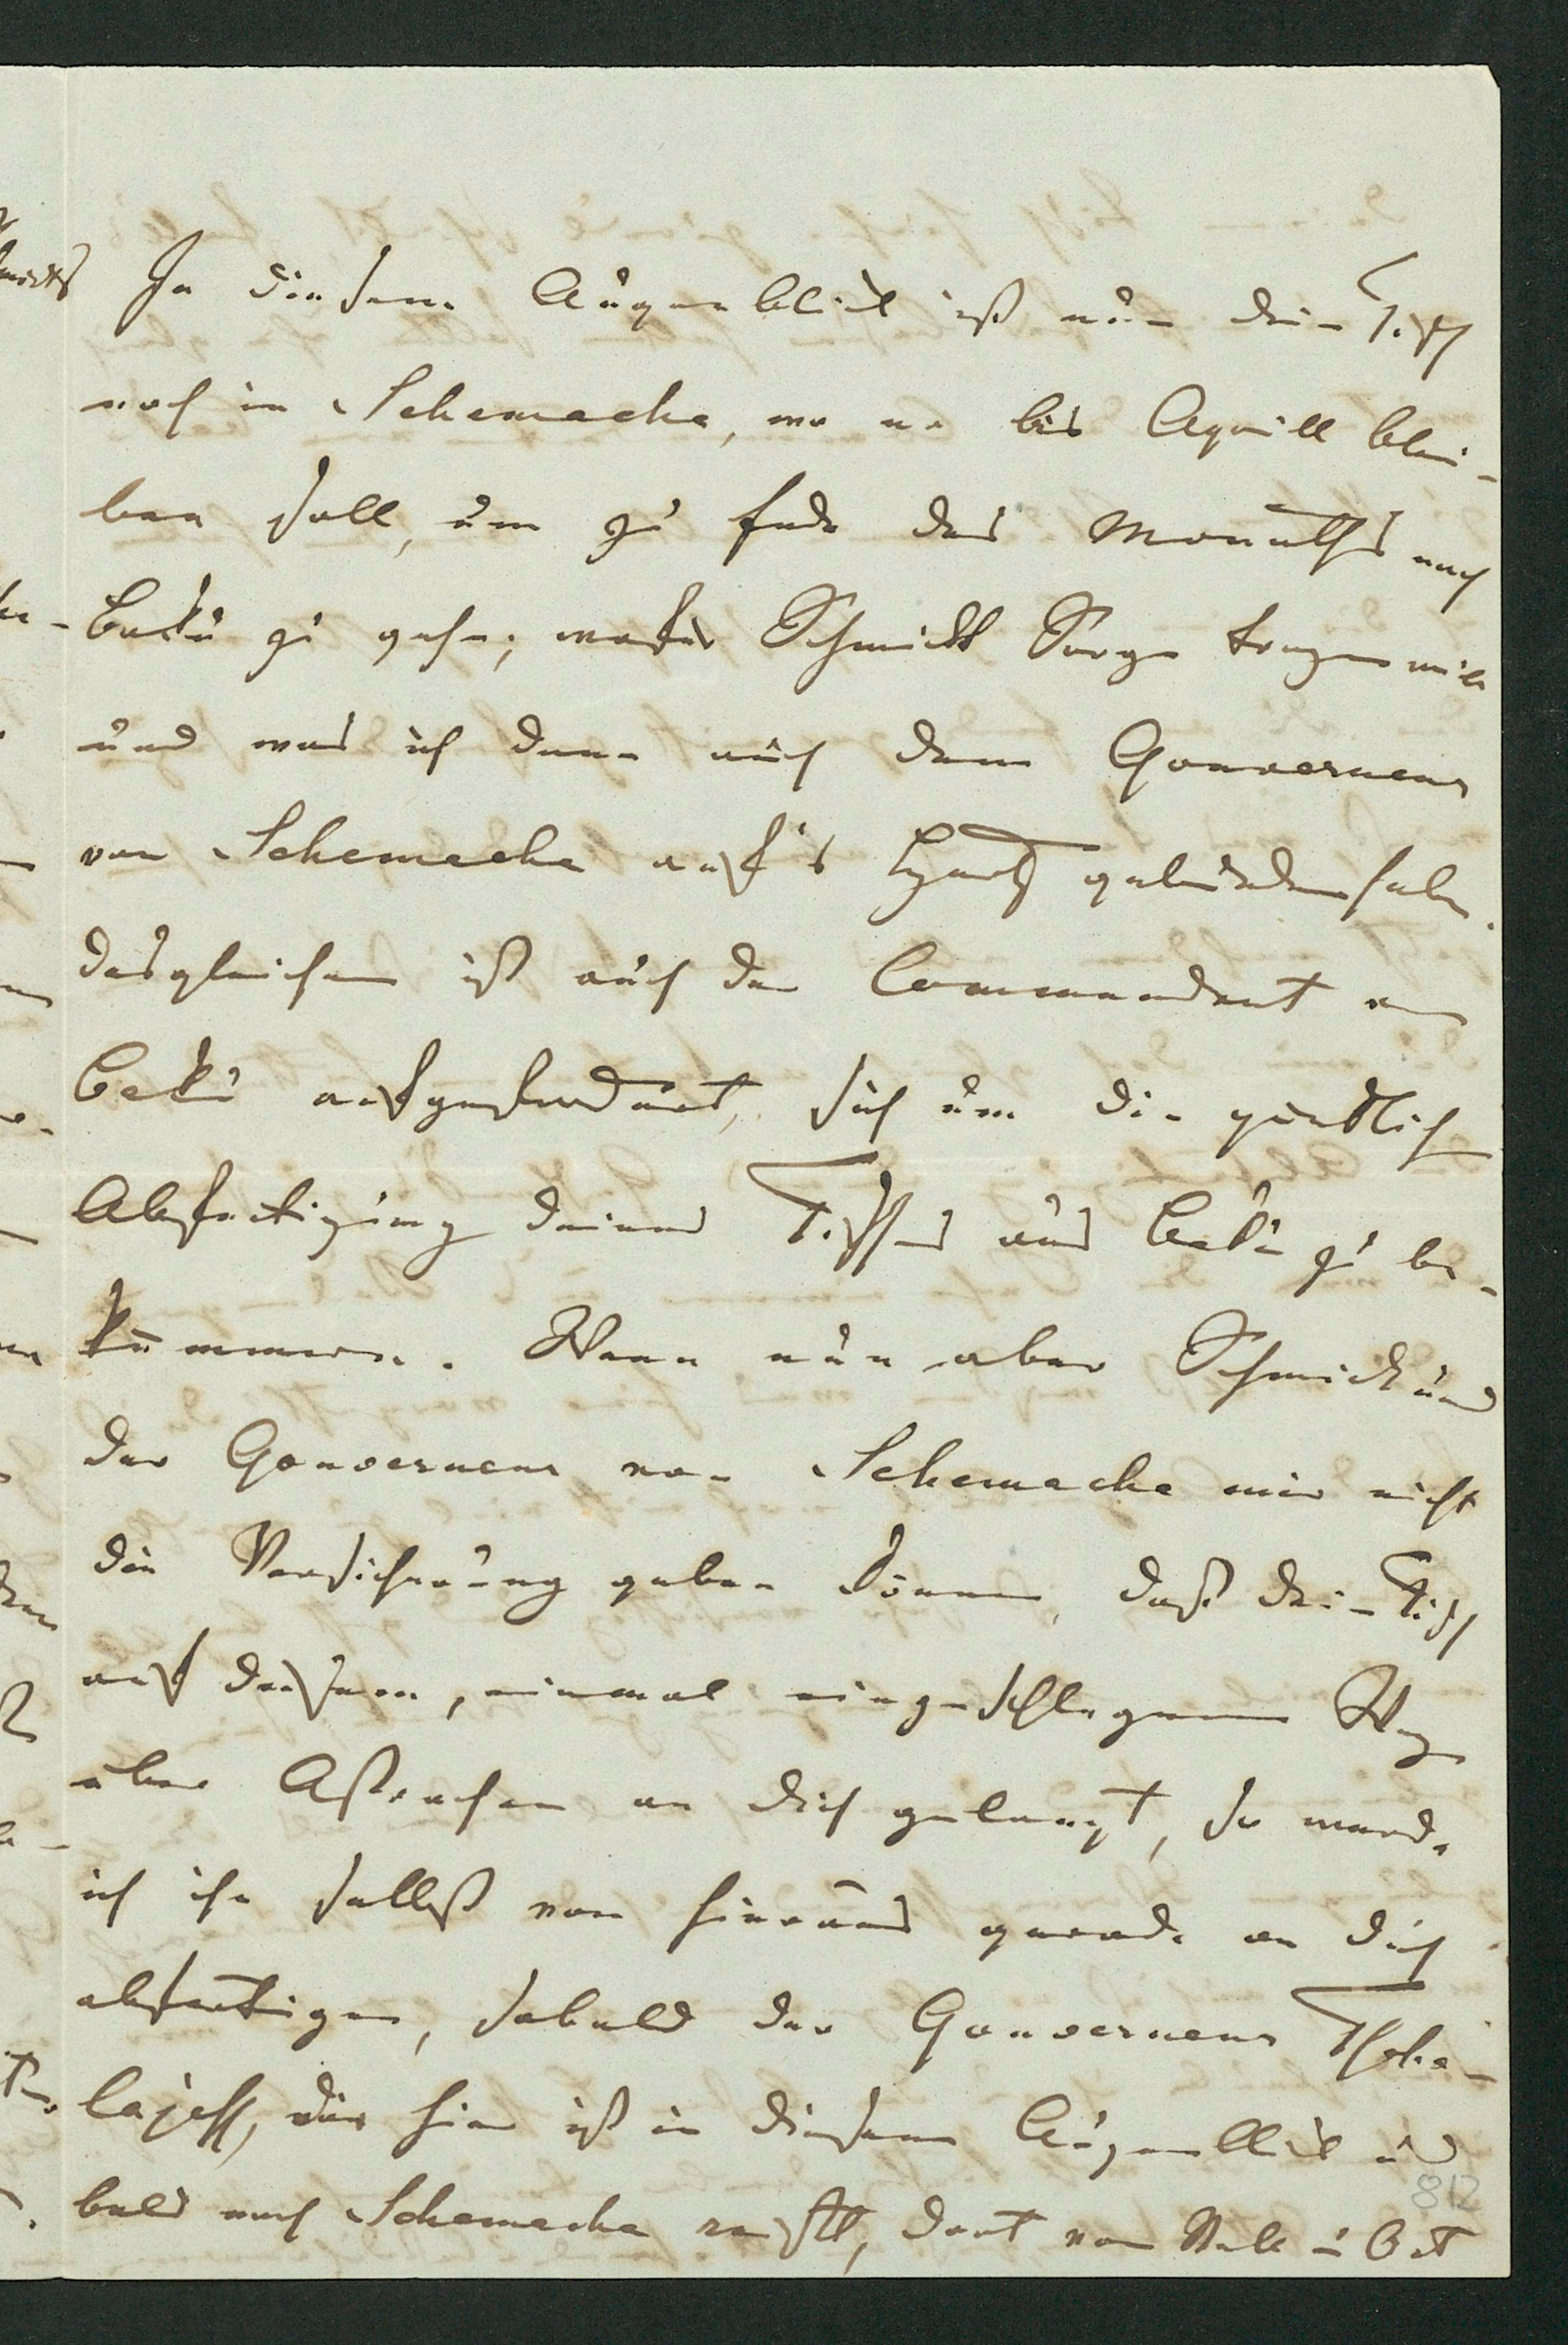 In diesem Augenblick ist nun dein Tisch
noch in Schemacha, wo er bis Aprill blei-
ben soll, um zu Ende des Monaths nach
Baku zu gehen; wofür Schmidt Sorge tragen will
und was ich denn auch dem Gouverneur
von Schemacha auf's Herz gebunden habe.
desgleichen ist auch der Commandant von
Baku aufgefordert, sich um die pünktliche
Abfertigung deines Tisches aus Baku zu be-
kümmern. Wenn nun aber Schmidt und
der Gouverneur von Schemacha mir nicht
die Versicherung geben können, daß dein Tisch
auf diesem, einmal eingeschlagenen Wege
über Astrachan an dich gelangt, so werde
ich ihn selbst von hieraus gerade an dich
abfertigen, sobald der Gouverneur Tscha-
lajeff, der hier ist in diesem Augenblick und
bald nach Schemacha reist, dort von Ort
812